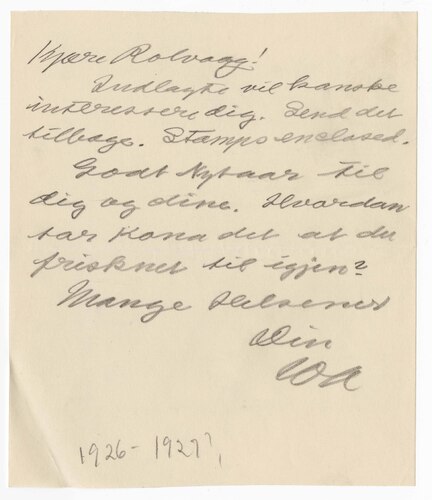 Kjære Rolvaag!
Indlagte vil kanske
interessere dig. Send det
tilbage. Stamps enclosed.
Godt Nytaar til
dig og dine. Hvordan
tar Kona det at du
frisknet til igjen?
Mange Hilsener
Din
1926-1927?